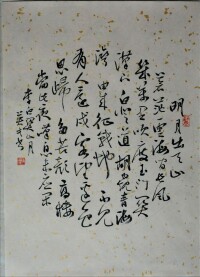 明月出天山
蒼茫雲海間長風
幾萬里吹度玉門關
漢下白登道胡窺青海
灣由來征戰地不見
有人還戍客望邊色
思歸多苦顏高樓
當此夜嘆息未應閑
李白
月